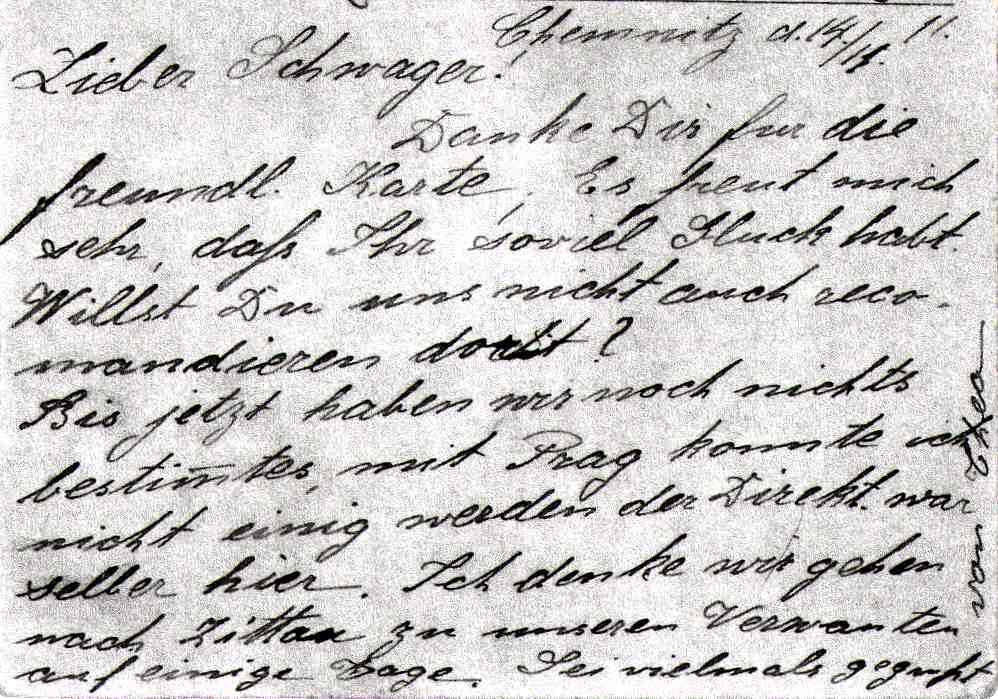 Chemnitz d. 14/18. 11.
Lieber Schwager!
Danke Dir fur die
freundl. Karte, Es freut mich
sehr, daß Ihr soviel Gluck habt.
Willst Du uns nicht auch reco-
mandieren dort?
Bis jetzt haben wir noch nichts
bestim̅tes, mit Prag konnte ich
nicht einig werden der Direkt. war
selber hier. Ich denke wir gehen
nach Zittau zu unseren Verwanten
auf einige Tage. Sei vielmals gegrußt
von Theo